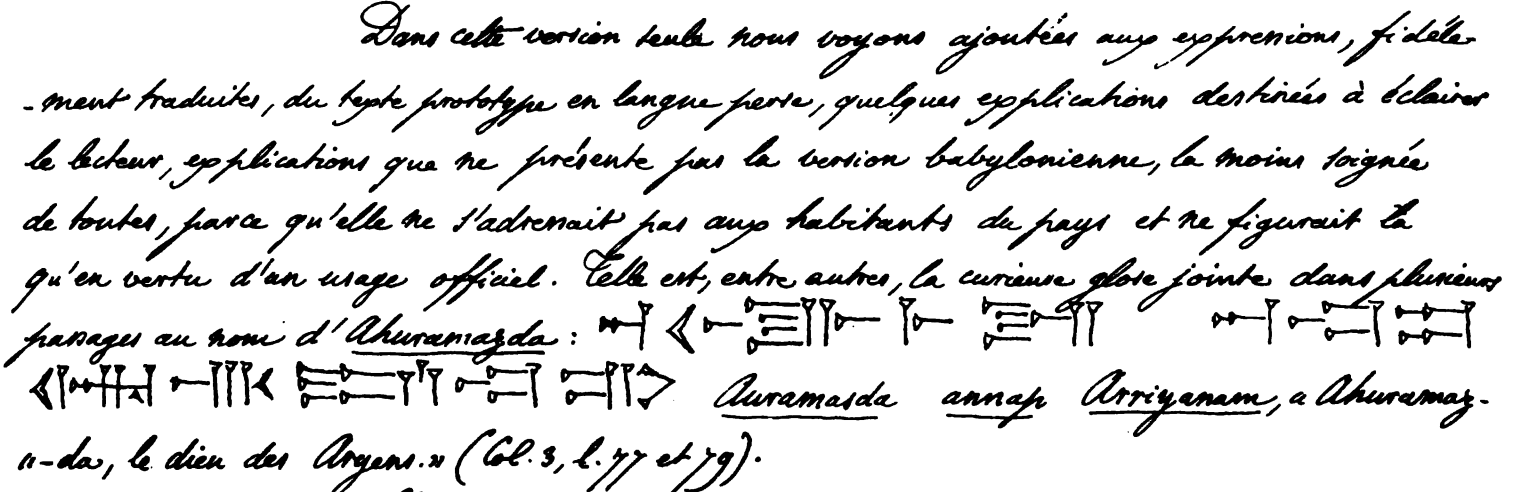 Dans cette version seule nous voyons ajoutées aux expressions, fidéle-
-ment traduites, du texte prototype en langue perse, quelques explications destinées à éclairer
le lecteur, explications que ne présente pas la version babylonienne, la moins soignée
de toutes, parce qu'elle ne s'adressait pas aux habitants du pays et ne figurait là
qu'en vertu d'un usage officiel. Telle est, entre autres, la curieuse glose jointe dans plusieurs
passages au nom d'Ahuramazda :
Auramasda annap Arriyanam, « Ahuramaz-
«-da, le dieu des Aryens.» (Col. 3, l. 77 et 79).